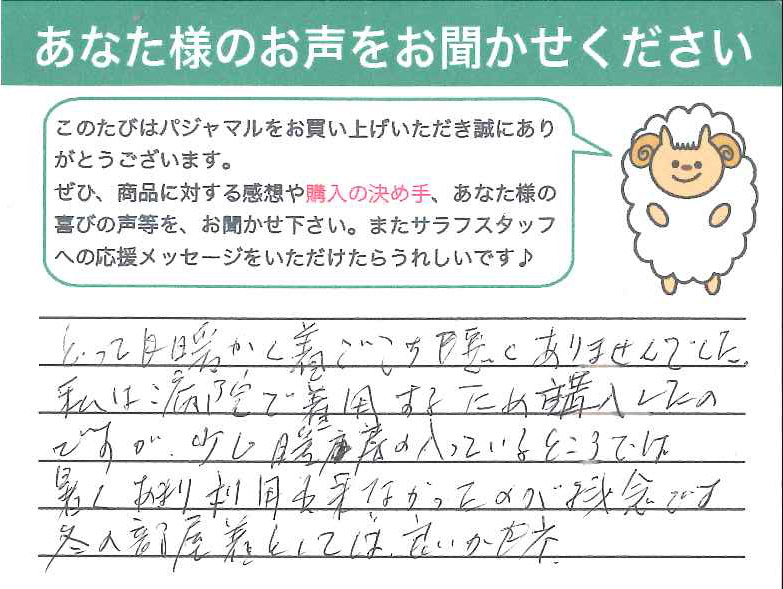 あなた様のお声をお聞かせください
このたびはパジャマルをお買い上げいただき誠にあり
がとうございます。
ぜひ、商品に対する感想や購入の決め手、あなた様の
喜びの声等を、お聞かせ下さい。またサラフスタッフ
への応援メッセージをいただけたらうれしいです♪
とっても暖かく着ごこち悪くありませんでした。
私は病院で着用するため購入したの
ですが、少し暖房の入っているところでは
暑くあまり利用出来なかったのが残念です
冬の部屋着としては、良いかもネ